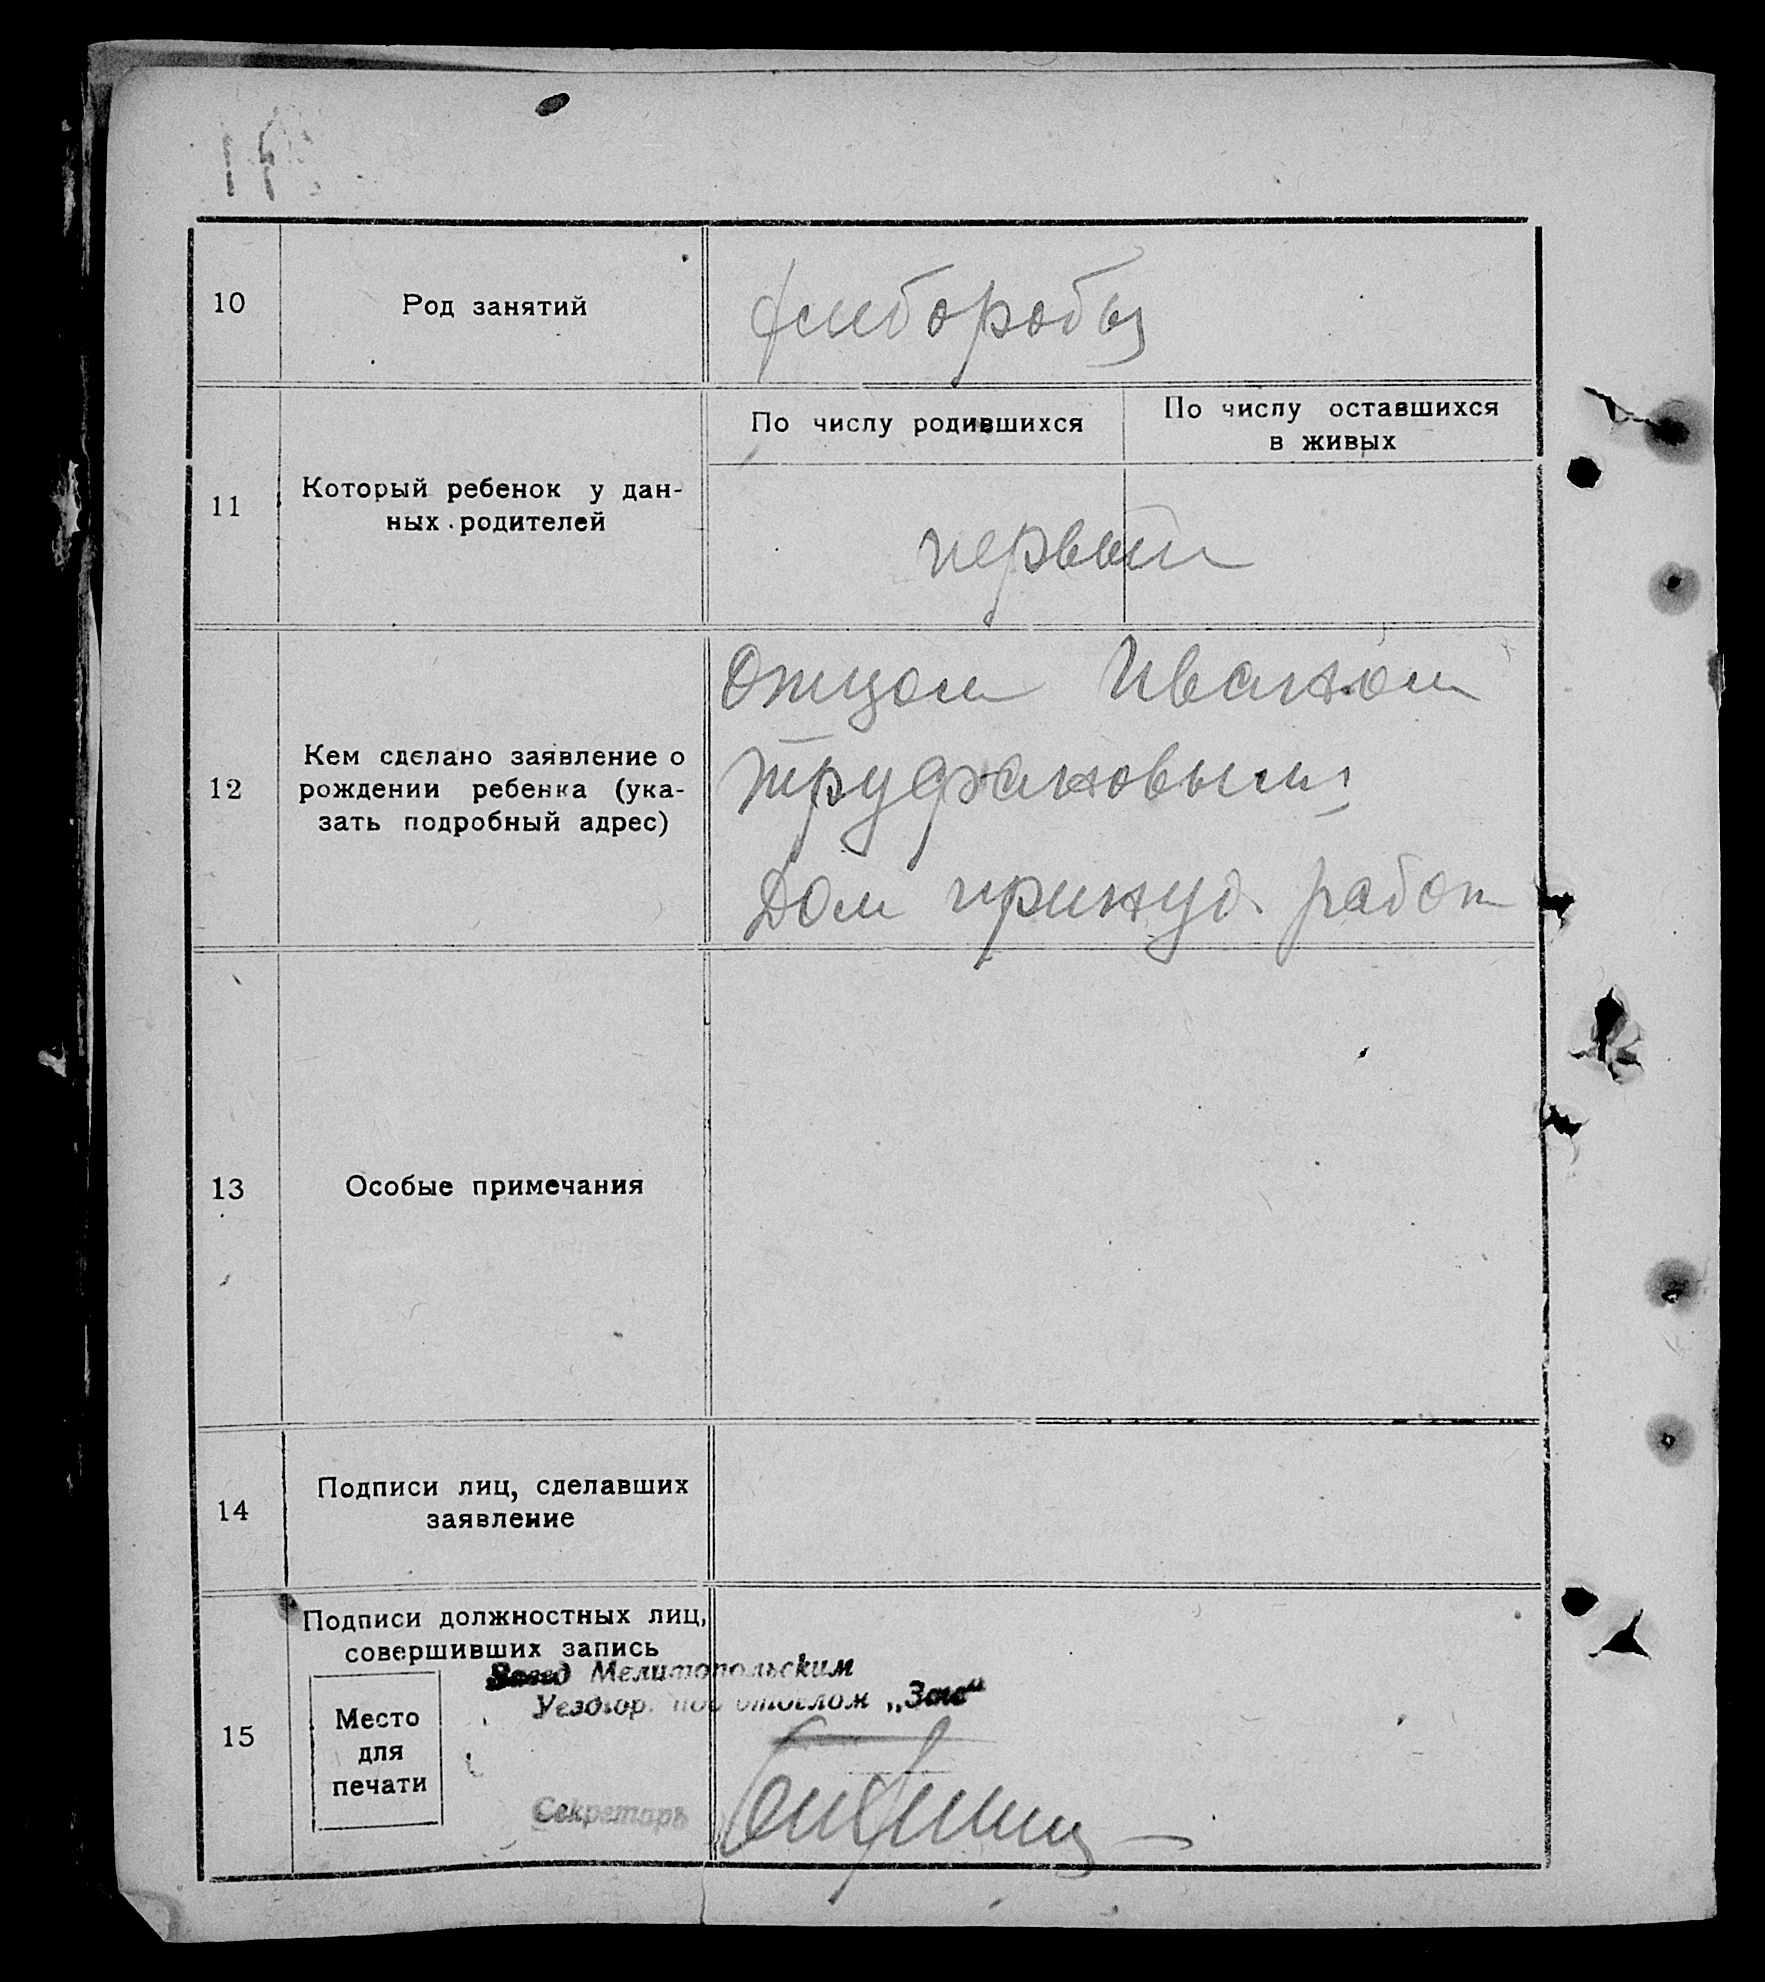 10
Род занятий
хлебороб
11
Который ребенок у дан-
ных родителей
По числу родившихся
По числу оставшихся
в живых
первый
12
Кем сделано заявление о
рождении ребенка (ука-
зать подробный адрес)
Отцом Иваном
Труфановым
Дом принуд. работ
13
Особые примечания
14
Подписи лиц, сделавших
заявление
15
Подписи должностных лиц,
совершивших запись
Место
для
печати
Завед Мелитопольским
Уездгор. под отделом „Загс“
Секретарь